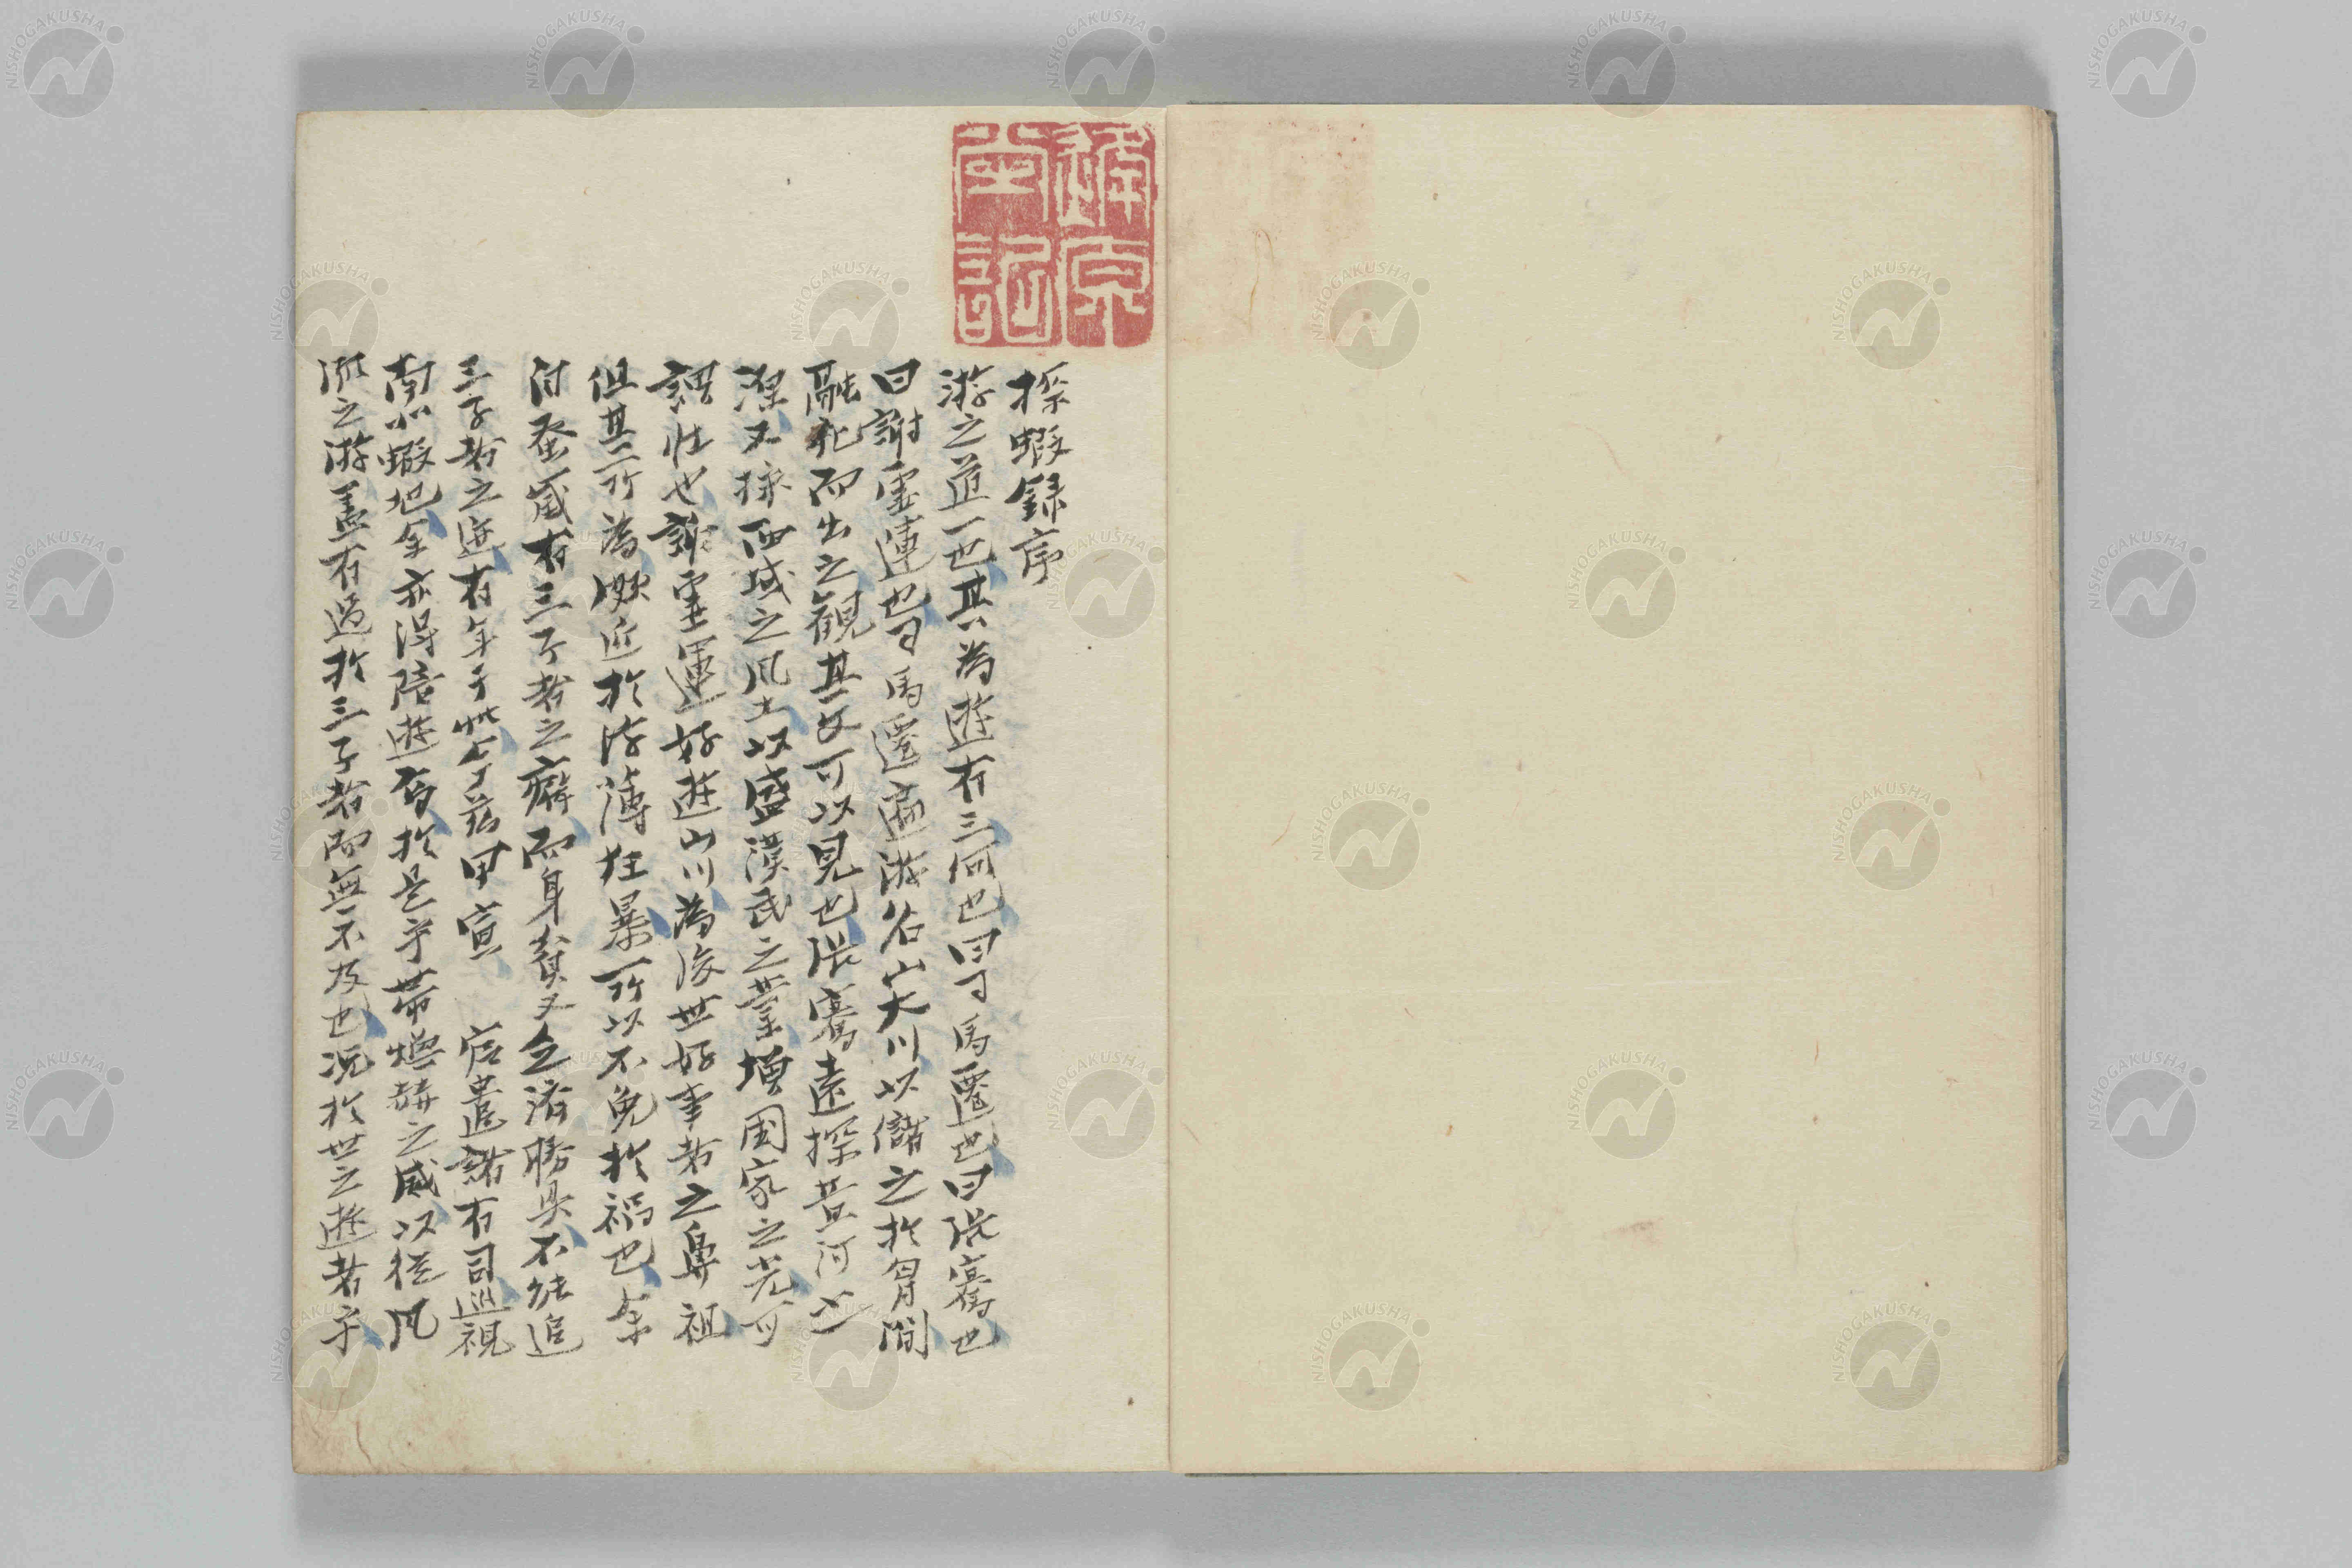 探蝦録序
游之道一也其為遊有三何也曰司馬遷也曰張騫也
曰謝霊運也司馬遷遍游名山大川以儲之於胷間
融化而出之観其文可以見也張騫遠探黄河之
又採西域之風土以盛漢武之業増国家之光可
謂壮也謝霊運好遊山川為後世好事者之鼻祖
但其所為 近於浮薄狂暴所以不免於禍也余
有三子者之癖而身貧又乏済勝具不能追
三子者之迹有年于此 茲甲 官 遣諸有司巡視
南北蝦地余亦得陪遊 於是乎帯 之威以従風
流之游蓋有過於三子者而無不及也况於世之遊者乎
NISHOGAKUSHA